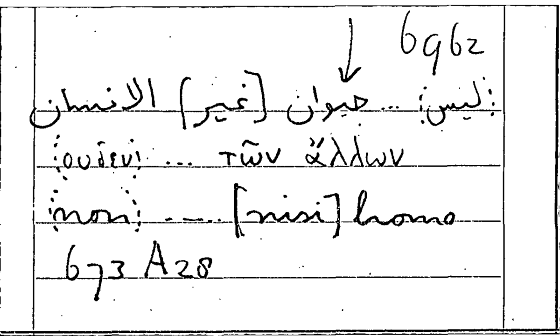 6962
:ليس: ... حيوان [غير] الانسان
:ουδεν: ... τῶν ἄλλων
:non: ..... [nisi] homo
673 A28